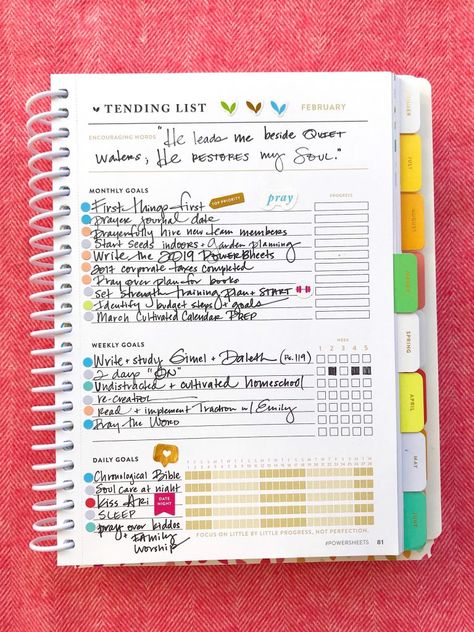 TENDING LIST
FEBRUARY
ENCOURAGING WORDS "He leads me beside QUIET
waters, He RESTORES my Soul."
MONTHLY GOALS
PROGRESS
First things first TOP PRIORITY pray
Prayer journal date
Prayerfully hire new team members
Start Seeds indoors + Garden planning
Write the 2019 PowerSheets
2017 corporate taxes completed
Pray over plan for books
Set strength training plan + START
Identify budget steps + goals
March Cultivated Calendar PREP
WEEKLY GOALS
WEEK
1 2 3 4 5
Write + study Gimel + Daleth (Ps. 119)
2 days "ON"
Undistracted + cultivated homeschool
re-creation
Read + implement Traction w/ Emily
Pray THE WORD
DAILY GOALS
Chronological Bible
Soul care at night
Kiss ARI DATE NIGHT
SLEEP
pray over kiddos
+ FAMILY
Worship
FOCUS ON LITTLE BY LITTLE PROGRESS, NOT PERFECTION.
#POWERSHEETS 81
SUMMER
JULY
AUGUST
SPRING
APRIL
MAY
JUNE